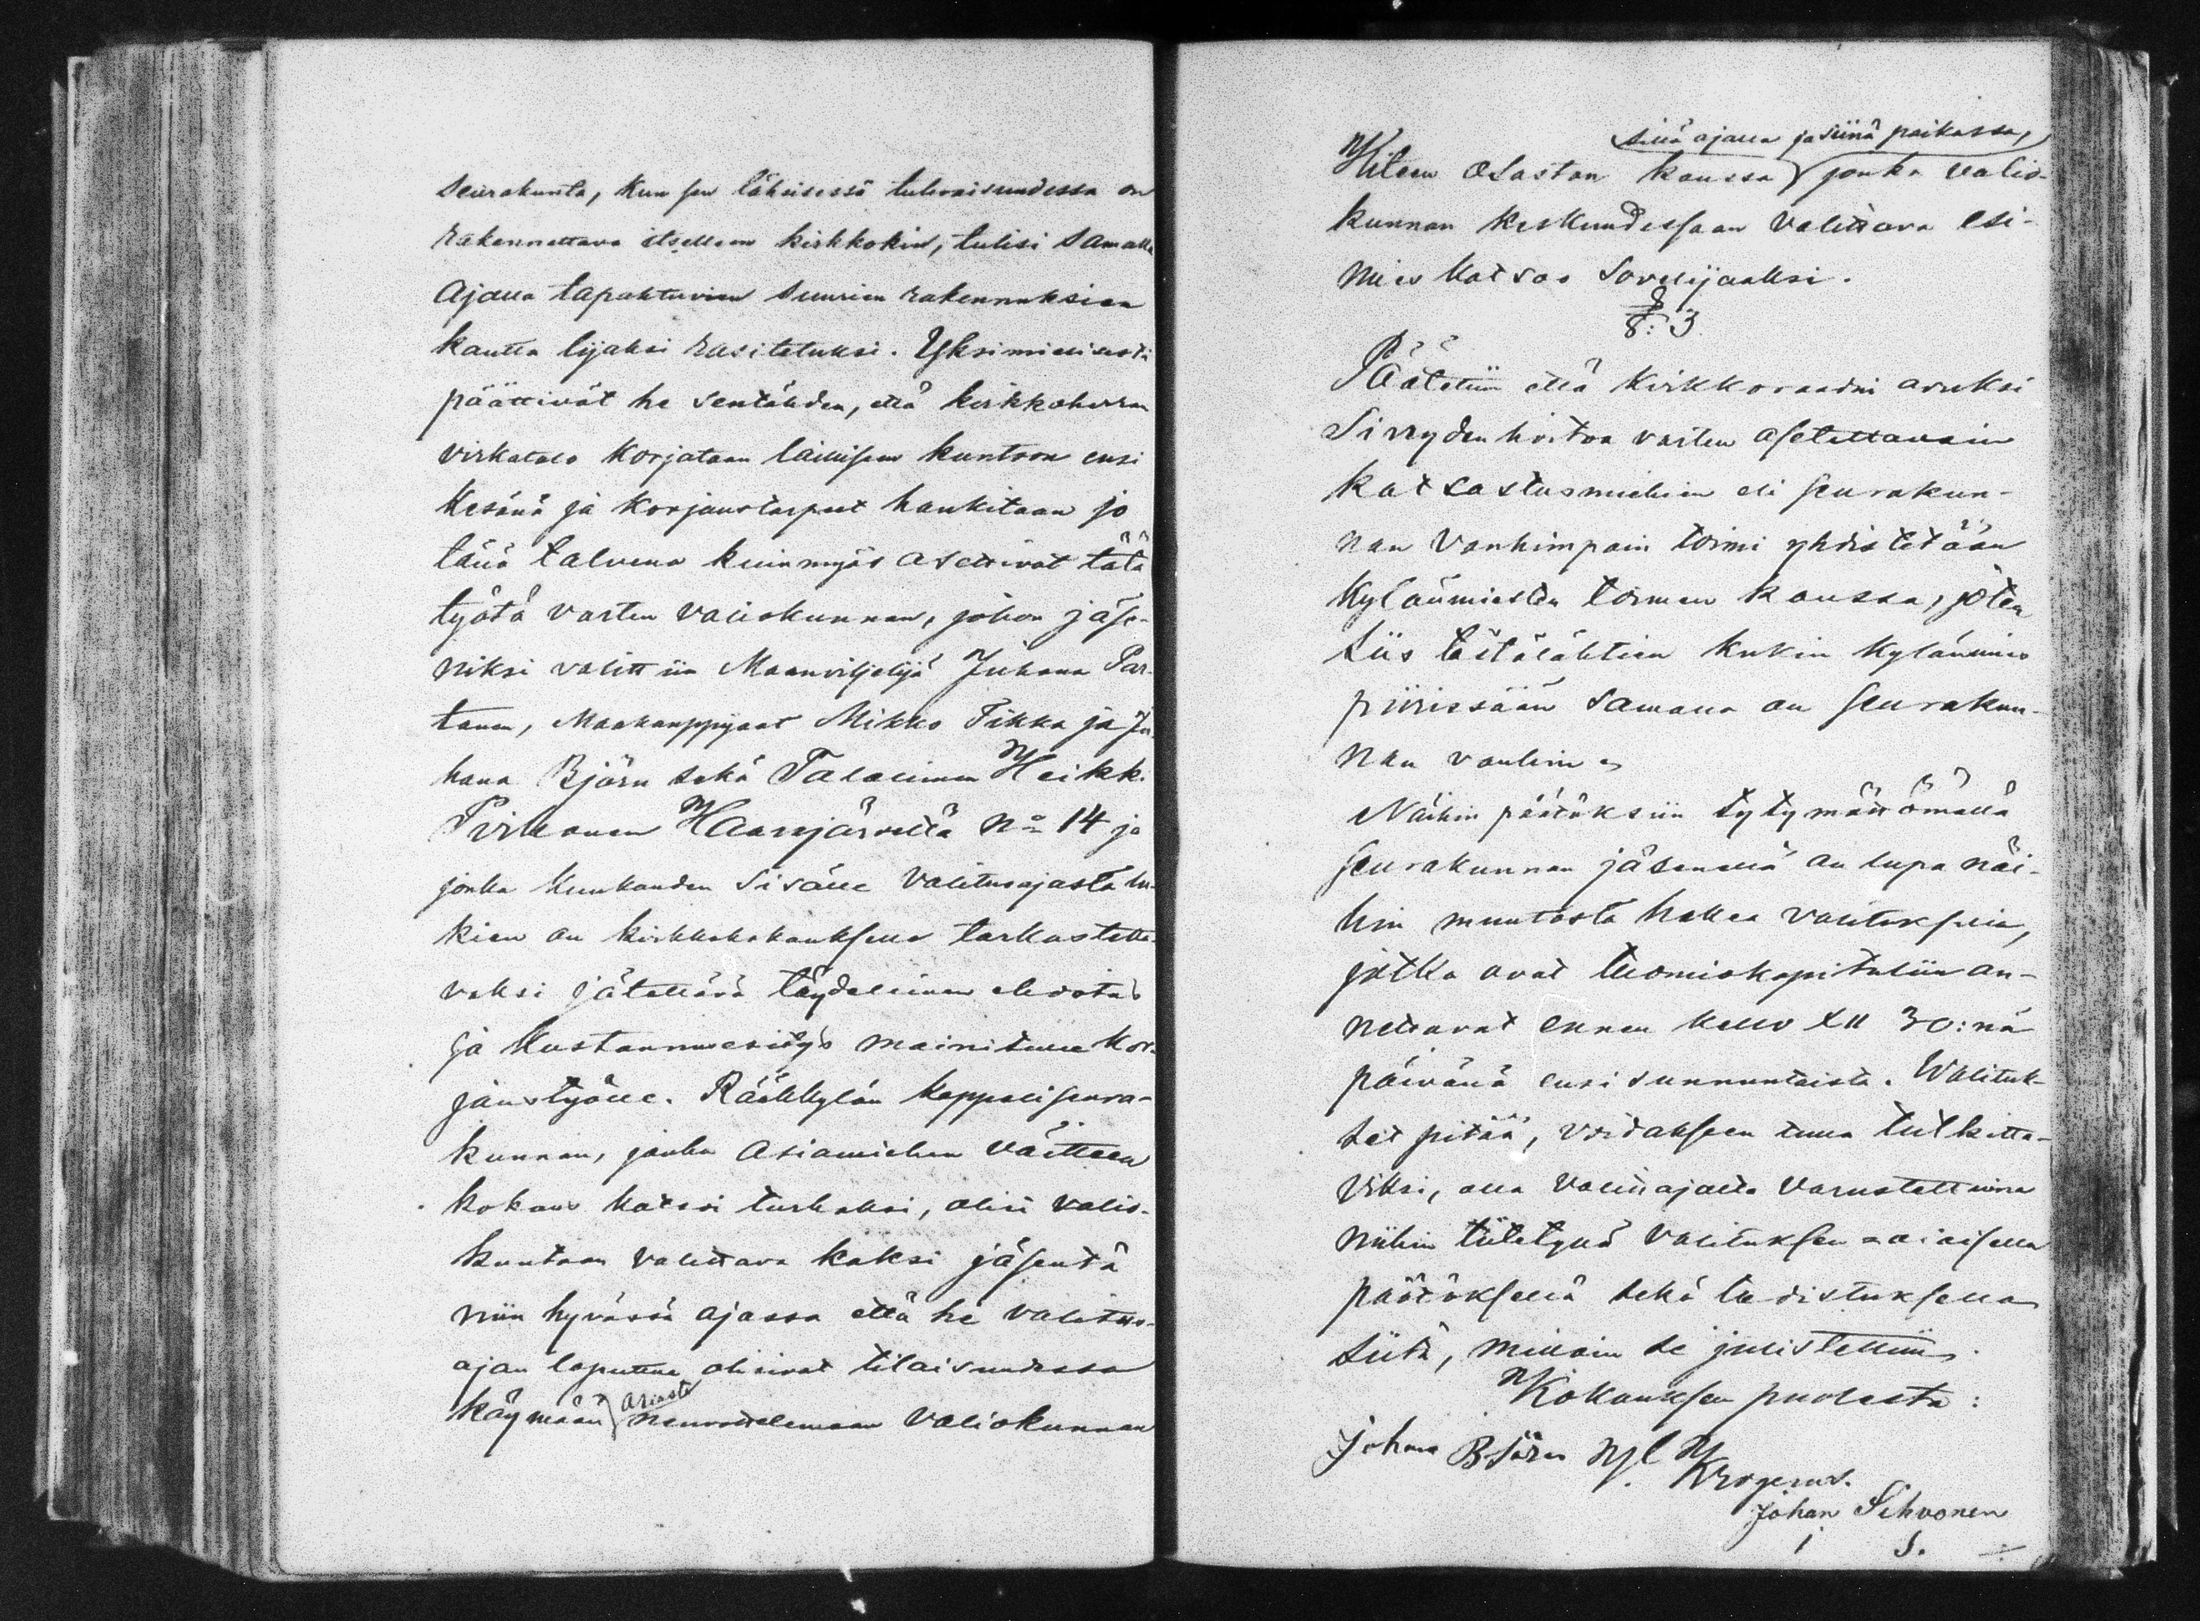 seurakunta, kun sen läheisessä tulevaisuudessa on
rakennettava itselleen kirkkokin, tulisi samalla
ajalla tapahtuvien suurien rakennuksien
kautta lijaksi rasitetuksi. Yksimielisesti
päättivät he sentähden, että kirkkoherran
virkatalo korjataan lailliseen kuntoon ensi
kesänä ja korjaustarpeet hankitaan jo
tänä talvena kuin myös asettivat tätä
työtä varten valiokunnan, johon jäse-
niksi valittiin Maanviljelijä Juhana Par-
tanen, Maakauppijaat Mikko Tikka ja Ju-
hana Björn sekä Talollinen Heikk.
Pirhonen Haarajärveltä No 14 ja
jonka kuukauden sisälle valitusajasta lu-
kien on kirkkokokoukselle tarkastetta-
vaksi jätettävä täydellinen ehdotus
ja kustannusesitys mainitulle kor-
jaustyölle. Rääkkylän kappeliseura-
kunnan, jonka asiamiehen väitteen
kokous katsoi turhaksi, olisi valio-
kuntaan valittava kaksi jäsentä
niin hyvässä ajassa että he valitus-
ajan loputtua olisivat tilaisuudessa
käymään asiasta neuvottelemaan valiokunnan
sillä ajalla ja siinä paikassa,
Kiteen osaston kanssa jonka valio-
kunnan keskuudessaan valittava esi-
mies katsoo sovelijaaksi.
§ 3
Päätettiin että kirkkoraadin avuksi
siveyden hoitoa varten asetettavain
katsastusmiehien eli seurakun-
nan vanhimpain toimi yhdistetään
kylänmiesten toimen kanssa, joten
siis tästälähtien kukin kylänmies
piirissään samana on seurakun-
nan vanhin.
Näihin päätöksiin tytymättömällä
seurakunnan jäsenellä on lupa näi-
hin muutosta hakea valituksella,
jotka ovat tuomiokapituliin an-
nettavat ennen kello XII 30:nä
päivänä ensi sunnuntaista. Walituk-
set pitää, voidakseen tulla tutkitta-
viksi, olla valitusajalla varustettuina
niihin liitetyllä valituksen alaisella
päätöksellä sekä todistuksella
siitä, milloin se julistettiin.
Kokouksen puolesta:
Johana Björn Hj L Krogerus.
Johan Sihvonen